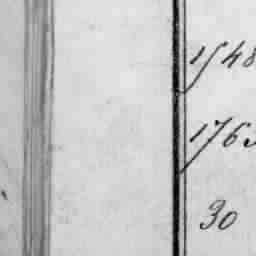 1548
1763
30